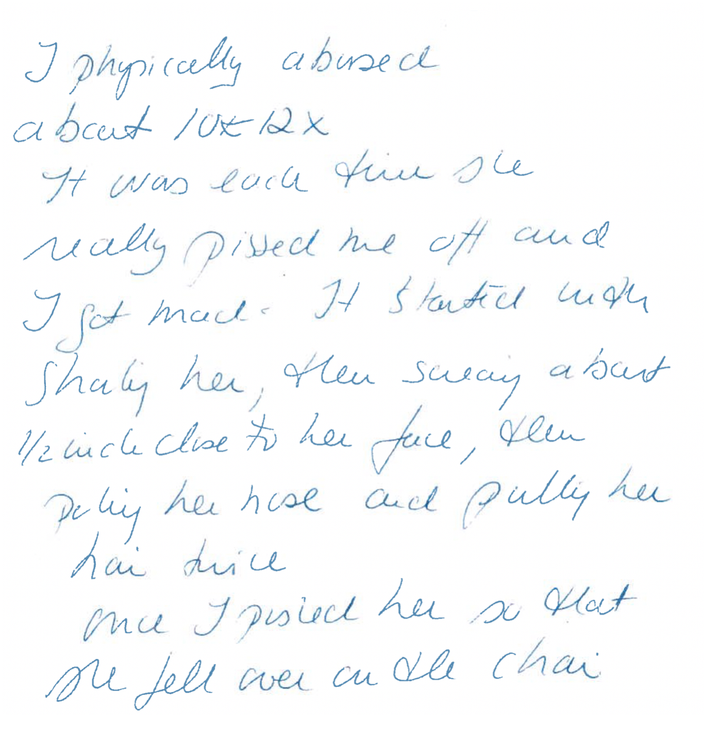 I physically abused
about 10 12x
It was each time she
really pissed me off and
I got mad. It started with
shaking her, then about
1/2 inch close to her face, then
poking her nose and pulling her
hair twice
once I pushed her so that
she fell over on the chair